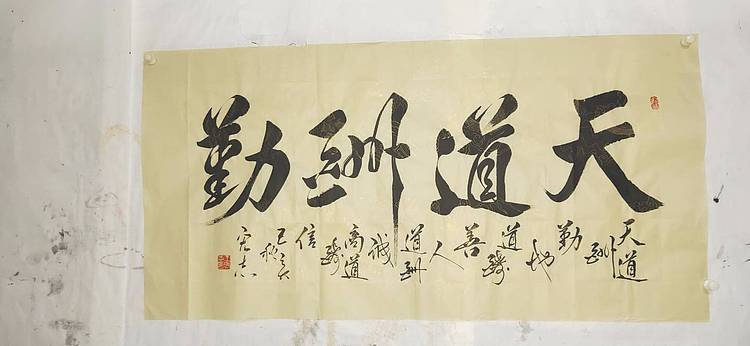 天道酬勤
天道酬勤地道酬善人道酬诚商道酬信